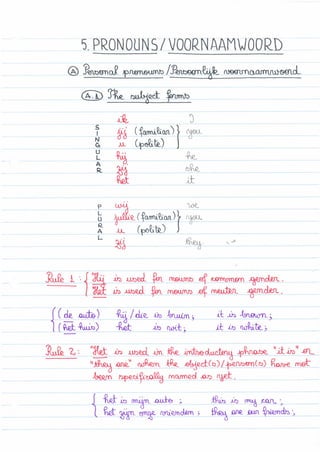 5. PRONOUNS / VOORNAAMWOORD
A Personal pronouns / Persoonlijk voornaamwoord
A.1 The subject forms
SINGULAR
ik I
jij (familiar) } you
u (polite)
hij he
zij she
het it
PLURAL
wij we
jullie (familiar) } you
u (polite)
zij they
Rule 1 : { Hij is used for nouns of common gender.
{ Het is used for nouns of neuter gender.
{ (de auto) hij / die is bruin ; it is brown ;
{ (het huis) het is wit ; it is white ;
Rule 2 : "Het is used in the introductory phrase "it is" or
"they are" when the object(s) / person(s) have not
been specifically named as yet.
{ het is mijn auto ; this is my car ;
{ het zijn onze vrienden ; they are our friends ;